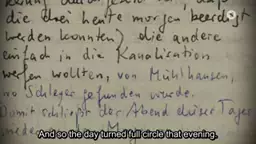 die drei heute morgen beerdigt
werden konnten) die andere
einfach in die Kanalisation
werfen wollten, von Mühlhausen,
wo Schleger gefunden wurde.
Damit schließt der Abend dieser Tage
And so the day turned full circle that evening.